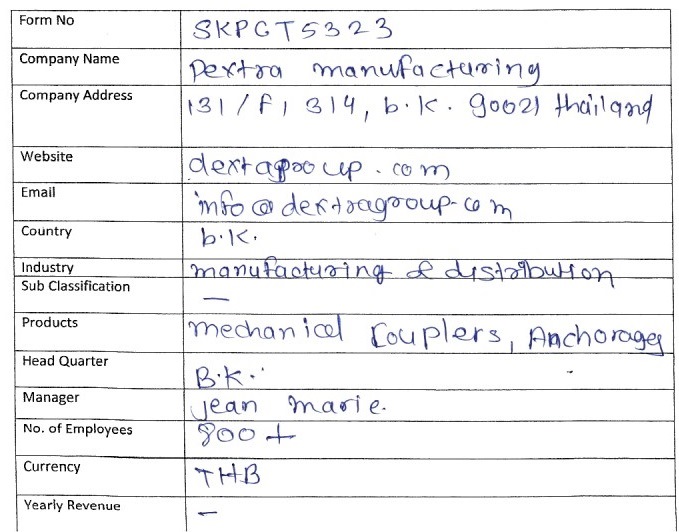 Form No SKPGT5323
Company Name Dextra manufacturing
Company Address 131/F1 314, b.k. 90021 thailand
Website dextagroup.com
Email info@dextragroup.com
Country b.k.
Industry manufacturing & distribution
Sub Classification —
Products mechanical Couplers, Anchorages
Head Quarter B.K.
Manager jean marie.
No. of Employees 800+
Currency THB
Yearly Revenue –